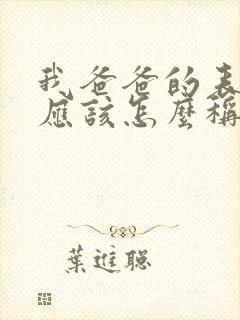 我爸爸的表
應該怎麼稱
葉進聰